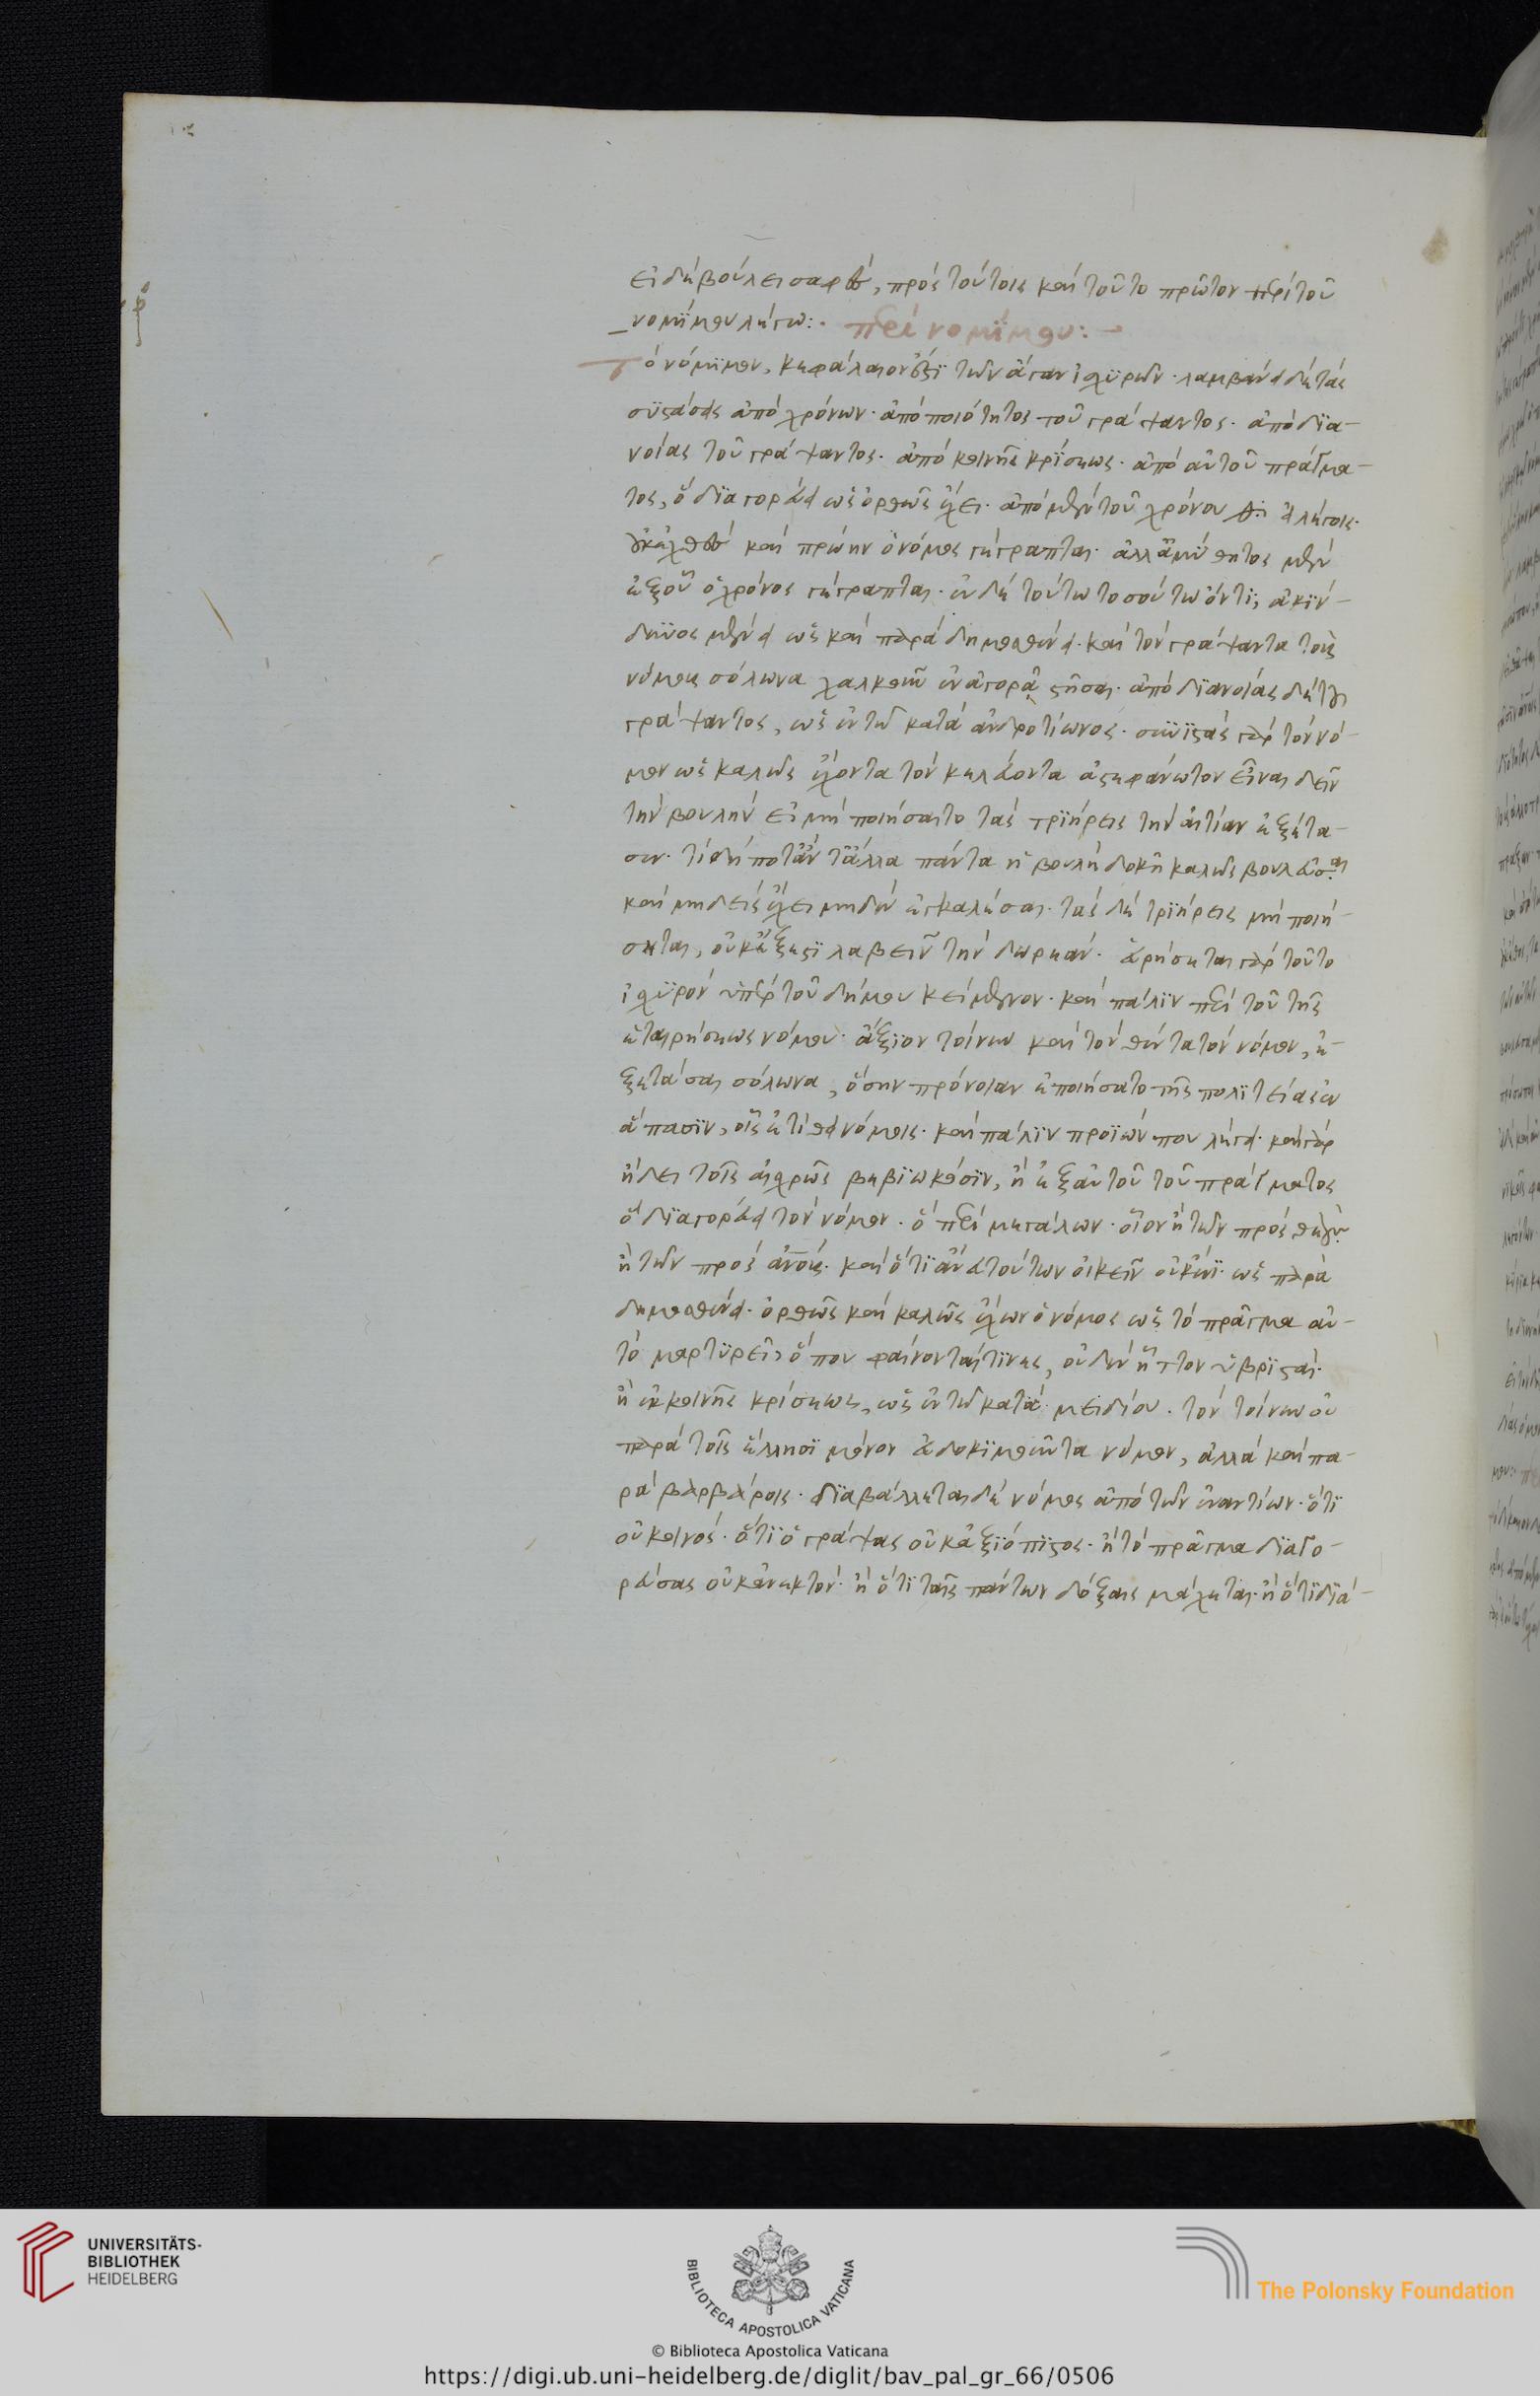 εἰ δὲ βούλει σαφῶς, πρὸς τούτοις καὶ τοῦτο πρῶτον περὶ τοῦ
νομίμου λέγω: περὶ νομίμου:
τὸ νόμιμον, κεφάλαιόν ἐστι τῶν ἄγαν ἰσχυρῶν· λαμβάνει δὲ τὰς
συστάσεις ἀπὸ χρόνων· ἀπὸ ποιότητος τοῦ γράψαντος· ἀπὸ δια-
νοίας τοῦ γράψαντος· ἀπὸ κοινῆς κρίσεως· ἀπὸ αὐτοῦ πράγμα-
τος, ὃ διαγορεύει ὡς ὀρθῶς ἔχει· ἀπὸ μὲν τοῦ χρόνου
καὶ πρώην ὁ νόμος γέγραπται· ἀλλ' ἀμύθητος μὲν
ἐξ οὗ ὁ χρόνος γέγραπται· ἐν δὲ τούτω τοσούτω ὄντι, ἀκίν-
δυνος μένει ὡς καὶ παρὰ δημοσθένει· καὶ τὸν γράψαντα τοὺς
νόμους σόλωνα χαλκοῦν ἐν ἀγορᾶ στῆσαι· ἀπὸ διανοίας δὲ τοῦ
γράψαντος, ὡς ἐν τῶ κατὰ ἀνδροτίωνος· συνιστὰς γὰρ τὸν νό-
μον ὡς καλῶς ἔχοντα τὸν κελεύοντα ἀστεφάνωτον εἶναι δεῖν
τὴν βουλὴν εἰ μὴ ποιήσαιτο τὰς τριήρεις τὴν αἰτίαν ἐξέτα-
σιν· τί δή ποτ' ἂν τἆλλα πάντα ἡ βουλὴ δοκῆ καλῶς βουλεῦσαι
καὶ μηδεὶς ἔχει μηδὲν ἐγκαλέσαι· τὰς δὲ τριήρεις μὴ ποιή-
σηται, οὐκ ἔξεστι λαβεῖν τὴν δωρεάν· εὑρήσεται γὰρ τοῦτο
ἰσχυρὸν ὑπὲρ τοῦ δήμου κείμενον· καὶ πάλιν περὶ τοῦ τῆς
ἑταιρήσεως νόμου· ἄξιον τοίνυν καὶ τὸν θέντα τὸν νόμον, ἐ-
ξετάσαι σόλωνα, ὅσην πρόνοιαν ἐποιήσατο τῆς πολιτείας ἐν
ἅπασιν, οἷς ἐτίθει νόμοις· καὶ πάλιν προϊών που λέγει· καὶ γὰρ
ἤδει τοῖς αἰσχρῶς βεβιωκόσιν, ἢ ἐξ αὐτοῦ τοῦ πράγματος
ὃ διαγορεύει τὸν νόμον· ὃ περὶ μεγάλων· οἷον ἢ τῶν πρὸς θεὸν
ἢ τῶν πρὸς ἀνους· καὶ ὅτι ἄνευ τούτων οἰκεῖν οὐκ ἔνι· ὡς παρὰ
δημοσθένει· ὀρθῶς καὶ καλῶς ἔχων ὁ νόμος ὡς τὸ πρᾶγμα αὐ-
τὸ μαρτυρεῖ, ὅπου φαίνονταί τινες, οὐδὲν ἧττον ὑβρισταί·
ἢ ἐκ κοινῆς κρίσεως, ὡς ἐν τῶ κατὰ μειδίου· τὸν τοίνυν οὐ
παρὰ τοῖς ἕλλησι μόνον εὐδοκιμοῦντα νόμον, ἀλλὰ καὶ πα-
ρὰ βαρβάροις· διαβάλλεται δὲ νόμος ἀπὸ τῶν ἐναντίων· ὅτι
οὐ κοινός· ὅτι ὁ γράψας οὐκ ἀξιόπιστος· ἢ τὸ πρᾶγμα διαγο-
ρεύσας οὐκ ἀνεκτόν· ἢ ὅτι ταῖς πάντων δόξαις μάχεται· ἢ ὅτι διὰ-
UNIVERSITÄTS-
BIBLIOTHEK
HEIDELBERG
BIBLIOTECA APOSTOLICA VATICANA
The Polonsky Foundation
© Biblioteca Apostolica Vaticana
https://digi.ub.uni-heidelberg.de/diglit/bav_pal_gr_66/0506